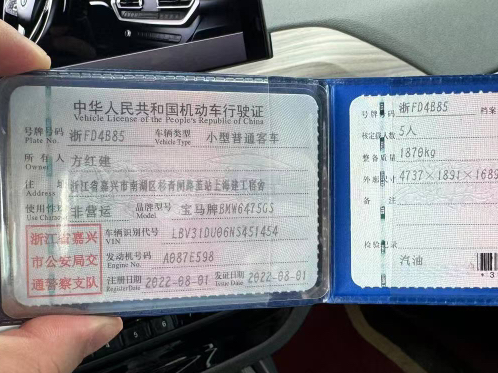 中华人民共和国机动车行驶证
Vehicle License of the People's Republic of China
号牌号码 浙FD4B85 车辆类型 小型普通客车
Plate No. Vehicle Type
所有人 方红建
Owner
住址 浙江省嘉兴市南湖区
Address
使用性质 非营运 品牌型号 宝马牌BMW6475GS
Use Character Model
浙江省嘉兴
市公安局交
通警察支队
车辆识别代号 LBV31DU06NS451454
VIN
发动机号码 A087E598
Engine No.
注册日期 2022-08-01 发证日期 2022-08-01
Register Date Issue Date
号牌号码 浙FD4B85 档案
核定载人数 5人
整备质量 1870kg
外廓尺寸 4737×1891×1689
备
检验记录
汽油